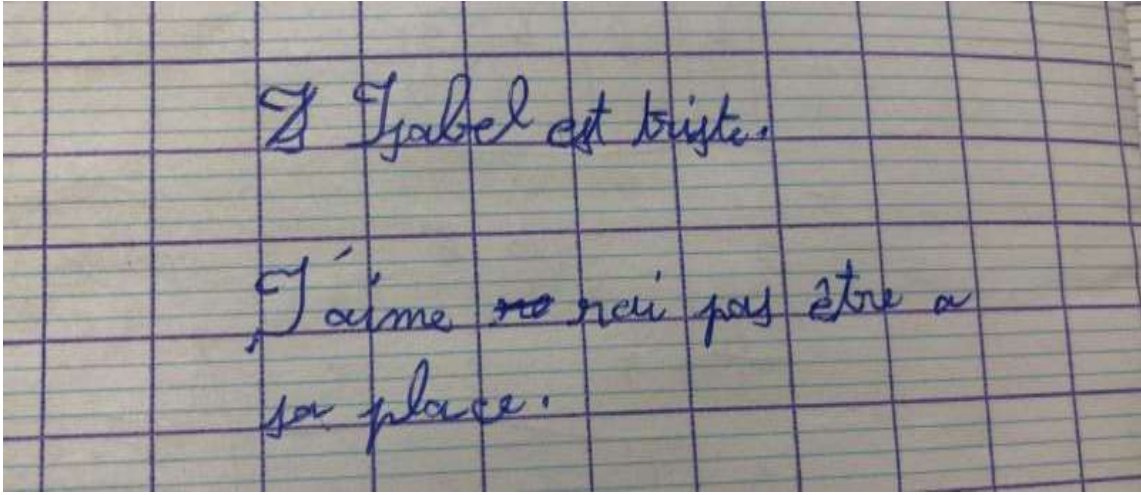 Isabel est triste.
J'aime rai pas être a
sa place.